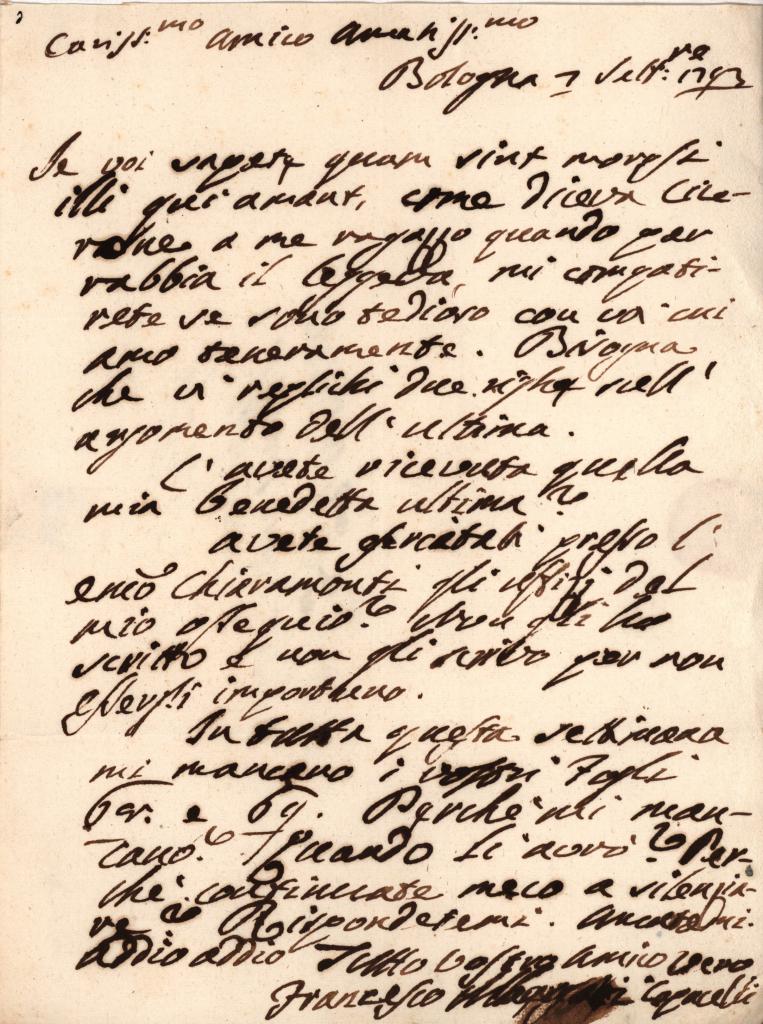 Cariss:mo Amico Amatiss:mo
Bologna 7 Sett:re 1793
Se voi sapete quam sint morosi
illi qui amant, come diceva Cice-
rone a me ragazzo quando per
rabbia il leggeva, mi compati-
rete se sono tedioso con voi cui
amo teneramente. Bisogna
che vi replichi due righe sull'
argomento dell'ultima.
L'avete ricevuta quella
mia benedetta ultima?
avete presso l'
emo Chiaramonti gli uffizj del
mio ossequio? Non gli ho
scritto e non gli scrivo per non
essergli importuno.
In tutta questa settimana
mi mancano i vostri Fogli
e 69. Perchè mi man-
cano? Quando li avrò? Per-
chè continuate meco a silenzia-
re? Rispondetemi. Amatemi.
addio addio Tutto vostro Amico vero
Francesco